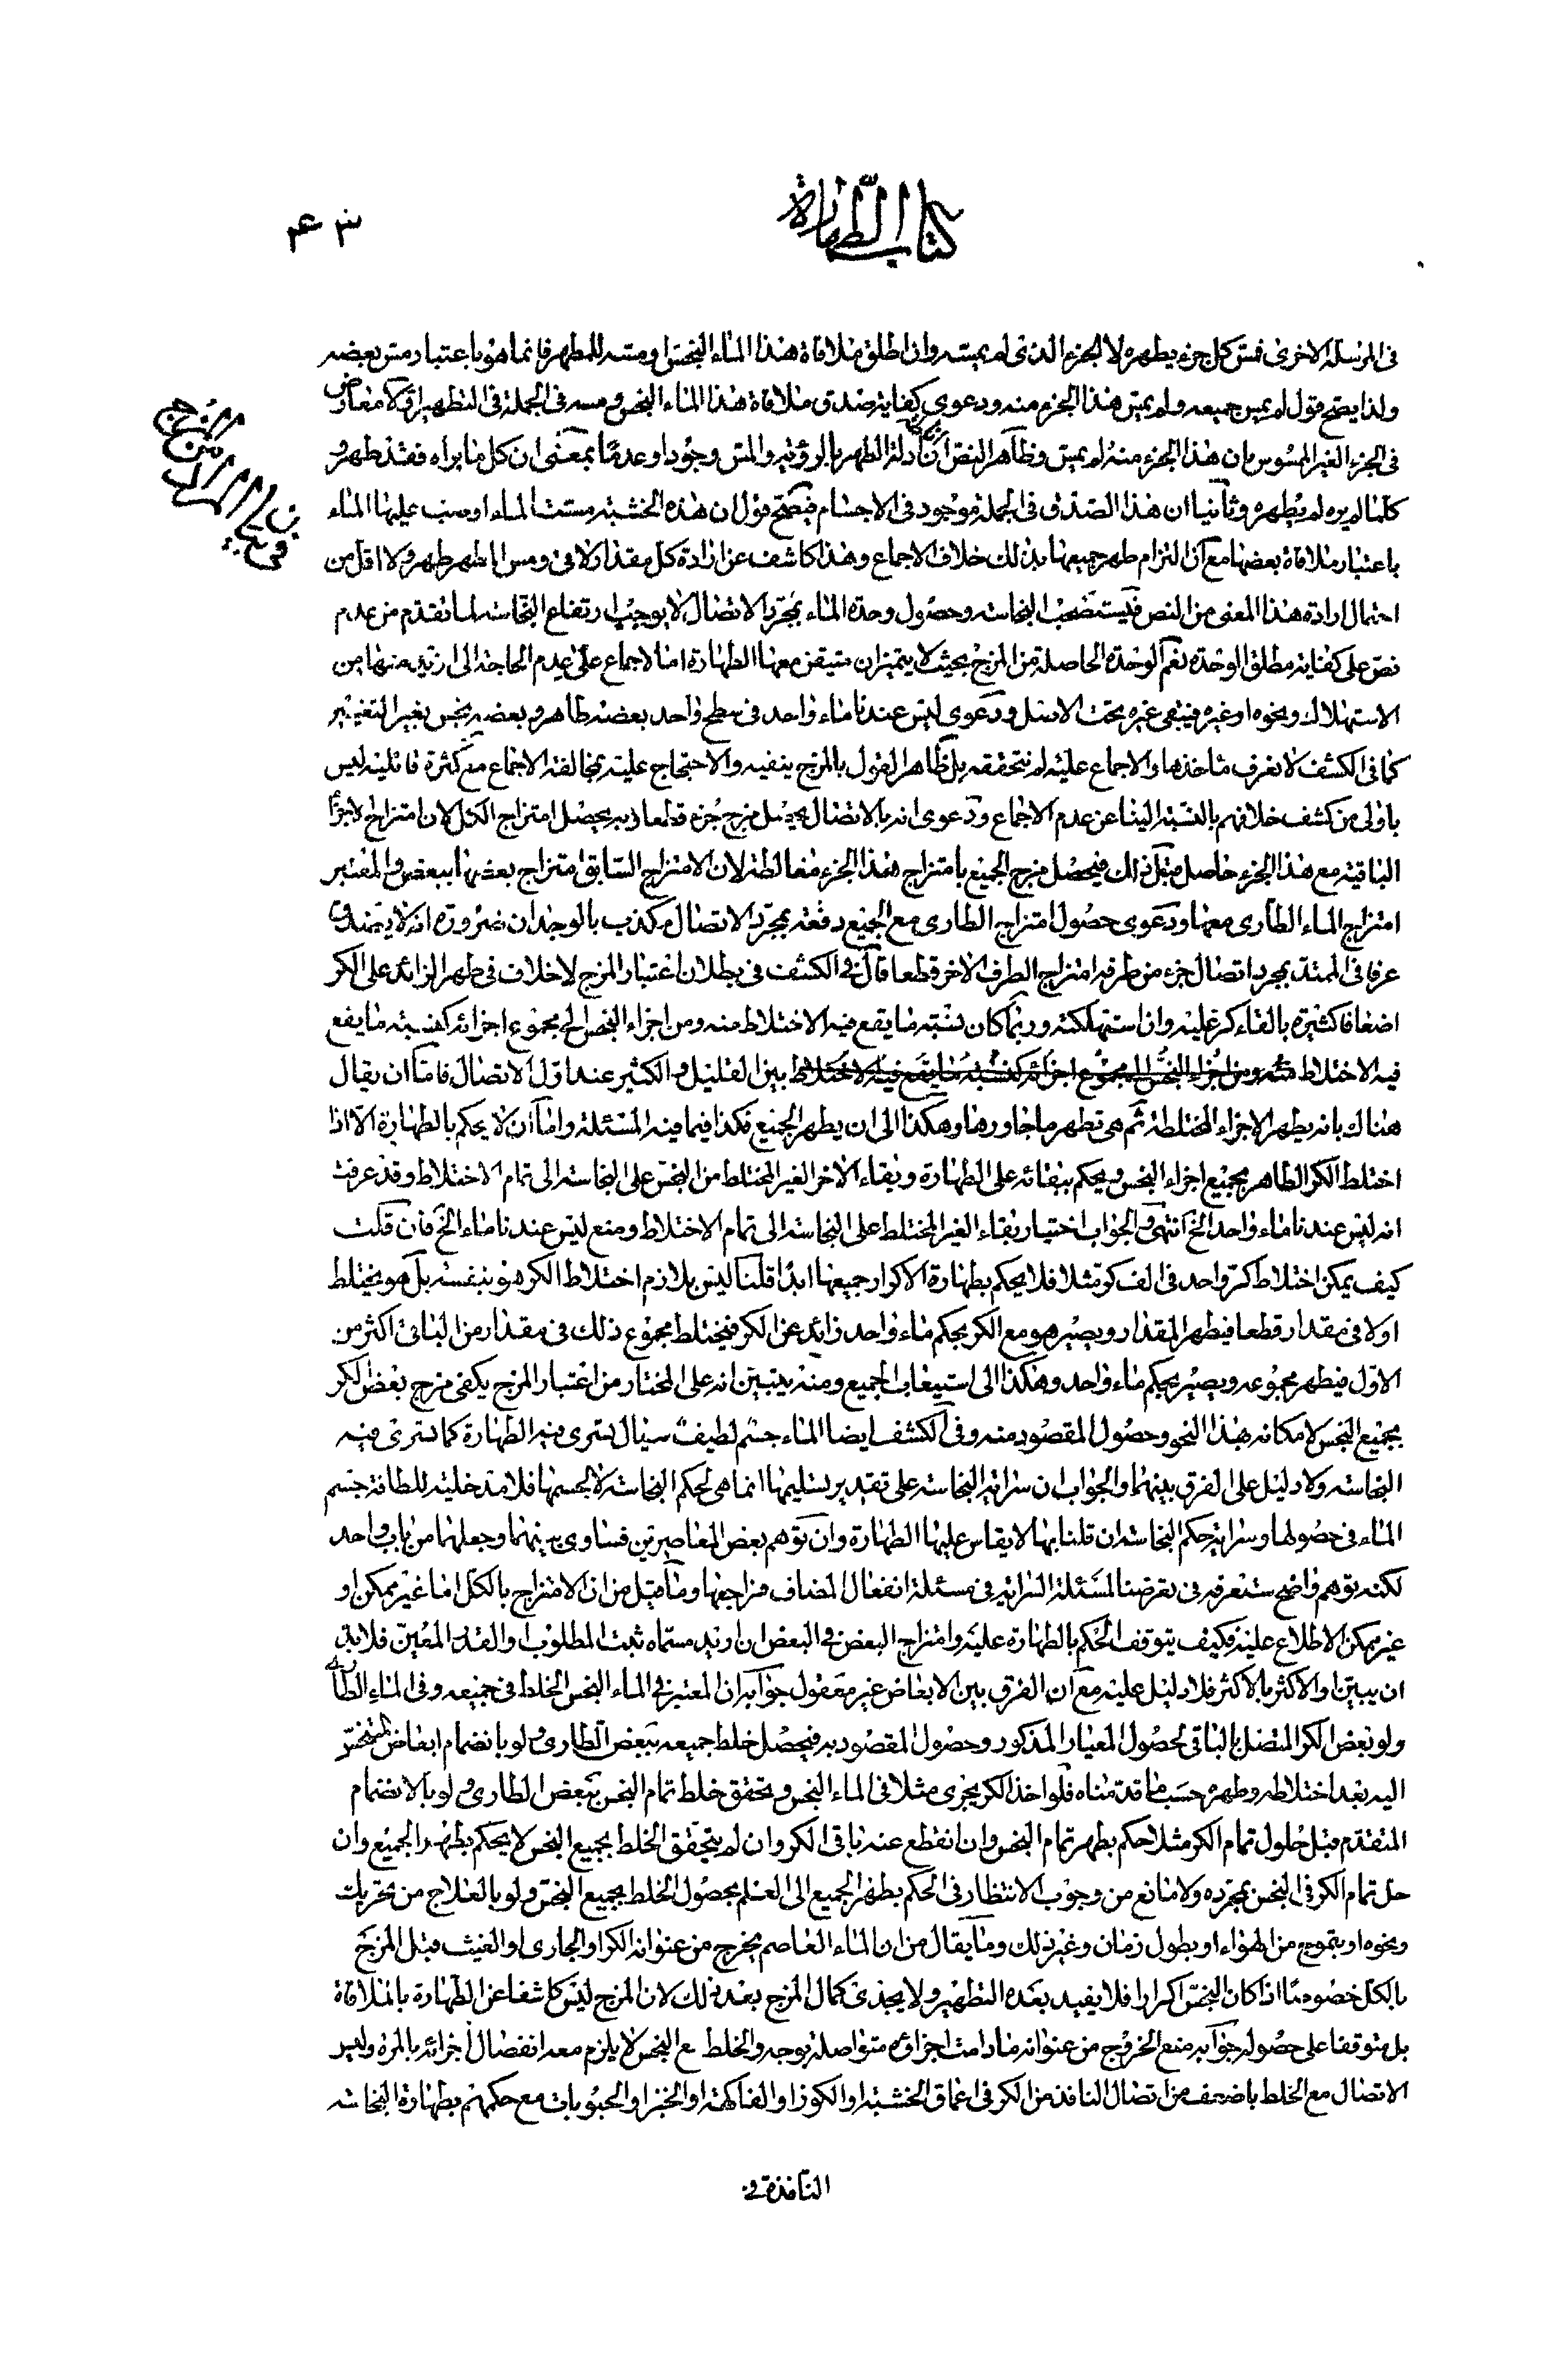 كتاب الطهارة
٤٣
في المرسلة الاخرى فمس كل جزء يطهره لا الجزء الذى لم يمسه وان اطلق ملاقاة هذا الماء النجس ومسه للمطهر فانما هو باعتبار مس بعضه
ولذا يصح قول لم يمس جميعه ولم يمس هذا الجزء منه ودعوى كفاية صدق ملاقاة هذا الماء النجس ومسه في الجملة في التطهير اولا معارض
في الجزء الغير الممسوس بان هذا الجزء منه لم يمس وظاهر النص ادلة الطهر بالرؤية والمس وجودا وعدما بمعنى ان كل ما يراه فقد طهر و
كلما لم يره لم يطهره وثانيا ان هذا الصدق في الجملة موجود في الاجسام فيصح قول ان هذه الخشبة مست الماء او صب عليها الماء
باعتبار ملاقاة بعضها مع ان التزام طهر جميعها بذلك خلاف الاجماع وهذا كاشف عن ارادة كل مقدار لاقى ومس المطهر طهر ولا اقل من
احتمال ارادة هذا المعنى من النص فيستصحب النجاسة وحصول وحدة الماء بمجرد الاتصال لا يوجب ارتفاع النجاسة لما تقدم من عدم
نص على كفاية مطلق الوحدة نعم الوحدة الحاصلة من المزج بحيث لا يتميزان متيقن معها الطهارة اما لاجماع على عدم الحاجة الى ازيد منها من
الاستهلاك ونحوه او غيره فيبقى غيره تحت الاصل ودعوى ليس عندنا ماء واحد في سطح واحد بعضه طاهر وبعضه نجس بغير التغيير
كما في الكشف لا نعرف مأخذها والاجماع عليه لم نتحققه بل ظاهر القول بالمزج ينفيه والاحتجاج عليه بمخالفة الاجماع مع كثرة قائليه ليس
باولى من كشف خلافهم بالنسبة الينا عن عدم الاجماع ودعوى انه بالاتصال يحصل مزج جزء قطعا وبه يحصل امتزاج الكل لان امتزاج الاجزاء
الباقية مع هذا الجزء حاصل قبل ذلك فيحصل مزج الجميع بامتزاج هذا الجزء مغالطة لان الامتزاج السابق امتزاج بعضها ببعض والمعتبر
امتزاج الماء الطارى معها ودعوى حصول امتزاج الطارى مع الجميع دفعة بمجرد الاتصال مكذب بالوجدان ضرورة انه لا يصدق
عرفا في الممتد بمجرد اتصال جزء من طرفه امتزاج الطرف الاخر قطعا قال في الكشف في بطلان اعتبار المزج لا خلاف في طهر الزائد على الكر
اضعافا كثيرة بالقاء كر عليه وان استهلكته وربما كان نسبة ما يقع فيه الاختلاط منه ومن اجزاء النجس الى مجموع اجزائه كنسبة ما يقع
فيه الاختلاط منه ومن اجزاء النجس الى مجموع اجزائه كنسبة ما يقع فيه الاختلاط بين القليل والكثير عند اول الاتصال فاما ان يقال
هناك بانه يطهر الاجزاء المختلطة ثم هي تطهر ما جاورها وهكذا الى ان يطهر الجميع فكذا فيما فيه المسئلة واما ان لا يحكم بالطهارة الا اذا
اختلط الكر الطاهر بجميع اجزاء النجس ويحكم ببقائه على الطهارة وبقاء الاخر الغير المختلط من النجس على النجاسة الى تمام الاختلاط وقد عرفت
انه ليس عندنا ماء واحد الخ انتهى والجواب اختيار بقاء الغير المختلط على النجاسة الى تمام الاختلاط ومنع ليس عندنا ماء الخ فان قلت
كيف يمكن اختلاط كر واحد في الف كر مثلا فلا يحكم بطهارة الاكرار جميعها ابدا قلنا ليس بلازم اختلاط الكر هو بنفسه بل هو يختلط
اولا في مقدار قطعا فيطهر المقدار ويصير هو مع الكر بحكم ماء واحد زائد عن الكر فيختلط مجموع ذلك في مقدار من الباقي اكثر من
الاول فيطهر مجموعه ويصير بحكم ماء واحد وهكذا الى استيعاب الجميع ومنه يتبين انه على المختار من اعتبار المزج يكفى مزج بعض الكر
بجميع النجس لامكانه بهذا النحو وحصول المقصود منه وفي الكشف ايضا الماء جسم لطيف سيال تسرى فيه الطهارة كما تسرى فيه
النجاسة ولا دليل على الفرق بينهما والجواب ان سراية النجاسة على تقدير تسليمها انما هى لحكم النجاسة لا لجسمها فلا مدخلية للطافة جسم
الماء في حصولها وسراية حكم النجاسة ان قلنا بها لا يقاس عليها الطهارة وان توهم بعض المعاصرين فساوى بينهما وجعلهما من باب واحد
لكنه توهم واضح ستعرفه في تعرضنا لمسئلة السراية في مسئلة انفعال المضاف فراجعها وما قيل من ان الامتزاج بالكل اما غير ممكن او
غير ممكن الاطلاع عليه فكيف يتوقف الحكم بالطهارة عليه وامتزاج البعض في البعض ان اريد مسماه ثبت المطلوب او القدر المعين فلابد
ان يبين او الاكثر بالاكثر فلا دليل عليه مع ان الفرق بين الابعاض غير معقول جوابه ان المعتبر في الماء النجس الخلط في جميعه وفي الماء الطارى
ولو بعض الكر المتصل بالباقى لحصول المعيار المذكور وحصول المقصود به فيحصل خلط جميعه ببعض الطارى ولو بانضمام ابعاض المتنجس
اليه بعد اختلاطه وطهره حسب ما قدمناه فلو اخذ الكر يجرى مثلا في الماء النجس وتحقق خلط تمام النجس ببعض الطارى ولو بالانضمام
المتقدم قبل حلول تمام الكر مثلا حكم بطهر تمام النجس وان انقطع عنه باقى الكر وان لم يتحقق الخلط بجميع النجس لا يحكم بطهر الجميع وان
حل تمام الكر في النجس بمجرده ولا مانع من وجوب الانتظار في الحكم بطهر الجميع الى العلم بحصول الخلط بجميع النجس ولو بالعلاج من تحريك
ونحوه او بتموج من الهواء او بطول زمان وغير ذلك وما يقال من ان الماء العاصم يخرج من عنوانه الكر او الجارى او الغيث قبل المزج
بالكل خصوصا اذا كان النجس اكرارا فلا يفيد بعده التطهير ولا يجدى كمال المزج بعد ذلك لان المزج ليس كاشفا عن الطهارة بالملاقاة
بل متوقفا على حصوله جوابه منع الخروج من عنوانه ما دامت اجزاؤه متواصلة بوجه والخلط مع النجس لا يلزم معه انفصال اجزائه بالمرة وليس
الاتصال مع الخلط باضعف من اتصال النافذ من الكر في اعماق الخشبة او الكوز او الفاكهة او الخبز او الحبوبات مع حكمهم بطهارة النجاسة
النافذة في